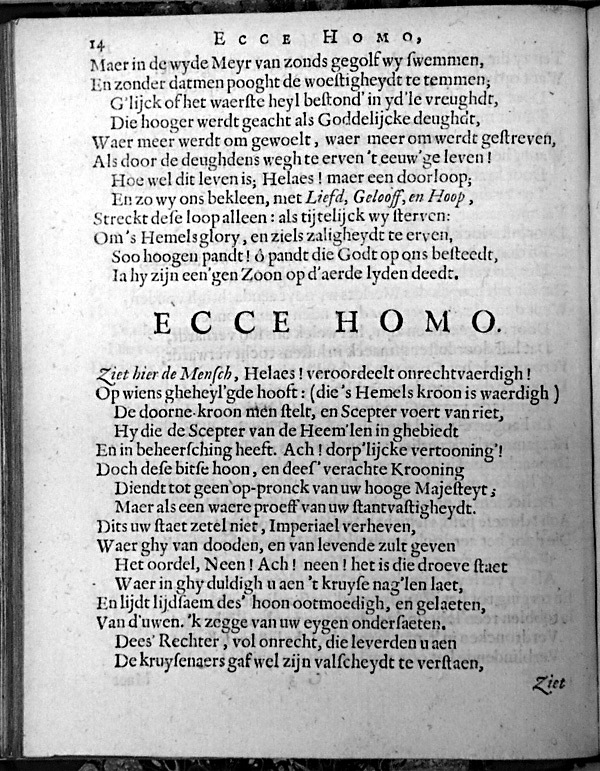 14 ECCE HOMO,
Maer in de wyde Meyr van zonds gegolf wy swemmen,
En zonder datmen pooght de woestigheydt te temmen;
G'lijck of het waerste heyl bestond' in yd'le vreughdt,
Die hooger werdt geacht als Goddelijcke deughdt,
Waer meer werdt om gewoelt, waer meer om werdt gestreven,
Als door de deughdens wegh te erven 't eeuw'ge leven!
Hoe wel dit leven is; Helaes! maer een doorloop;
En zo wy ons bekleen, met Liefd, Gelooff, en Hoop,
Streckt dese loop alleen: als tijtelijck wy sterven:
Om's Hemels glory, en ziels zaligheydt te erven,
Soo hoogen pandt! ô pandt die Godt op ons besteedt,
Ia hy zijn een'gen Zoon op d'aerde lyden deedt.
ECCE HOMO.
Ziet hier de Mensch, Helaes! veroordeelt onrechtvaerdigh!
Op wiens gheheyl'gde hooft: (die 's Hemels kroon is waerdigh)
De doorne-kroon men stelt, en Scepter voert van riet,
Hy die de Scepter van de Heem'len in ghebiedt
En in beheersching heeft. Ach! dorp'lijcke vertooning'!
Doch dese bitse hoon, en dees' verachte Krooning
Diendt tot geen op-pronck van uw hooge Majesteyt;
Maer als een waere proeff van uw stantvastigheydt.
Dits uw staet zetel niet, Imperiael verheven,
Waer ghy van dooden, en van levende zult geven
Het oordel, Neen! Ach! neen! het is die droeve staet
Waer in ghy duldigh u aen 't kruyse nag'len laet,
En lijdt lijdsaem des' hoon ootmoedigh, en gelaeten,
Van d'uwen. 'k zegge van uw eygen ondersaeten.
Dees' Rechter, vol onrecht, die leverden u aen
De kruysenaers gaf wel zijn valscheydt te verstaen,
Ziet